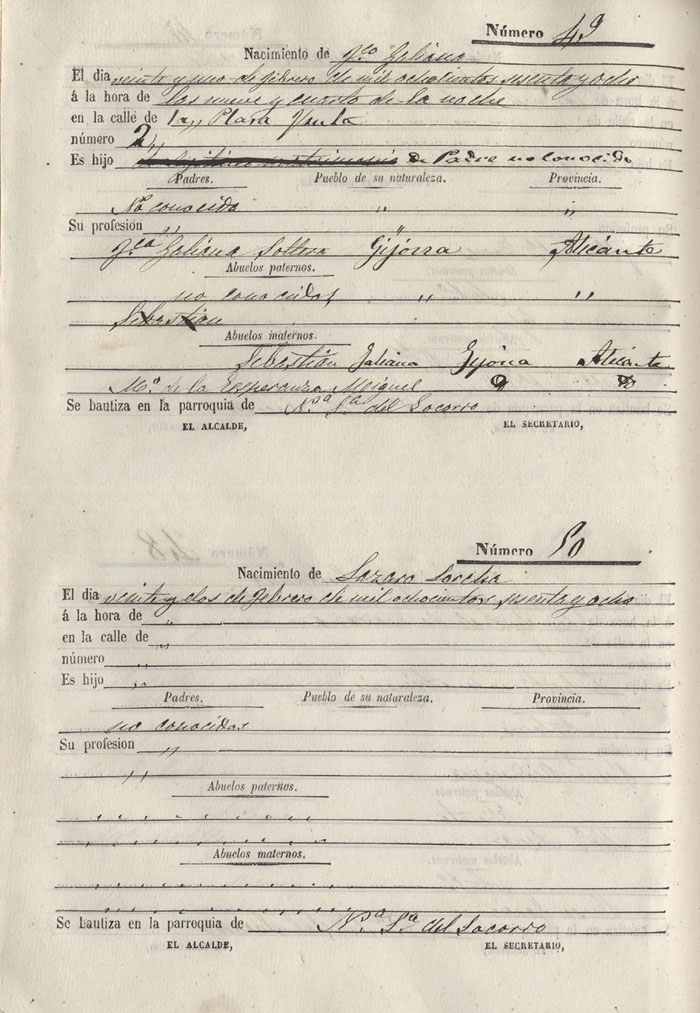 Número 49
Nacimiento de Fco Galiana
El dia veinte y uno de febrero de mil ochocientos sesenta y ocho
á la hora de las nueve y cuarto de la noche
en la calle de la,, Plaza
número 2,,
Es hijo de Padre no conocido
Padres. Pueblo de su naturaleza. Provincia.
No conocido ,, ,,
Su profesion ,,
Fca Galiana Soltera Gijona Alicante
Abuelos paternos.
no conocidos ,, ,,
Sebastián
Abuelos maternos.
Sebastián Galiana Gijona Alicante
Ma de la Esperanza Miguel
Se bautiza en la parroquia de Nsa Sa del Socorro
EL ALCALDE, EL SECRETARIO,
Número 50
Nacimiento de Lazaro
El dia veinte y dos de febrero de mil ochocientos sesenta y ocho
á la hora de ,,
en la calle de ,,
número ,,
Es hijo ,,
Padres. Pueblo de su naturaleza. Provincia.
no conocidos
Su profesion ,,
,,
Abuelos paternos.
Abuelos maternos.
Se bautiza en la parroquia de Nsa Sa del Socorro
EL ALCALDE, EL SECRETARIO,